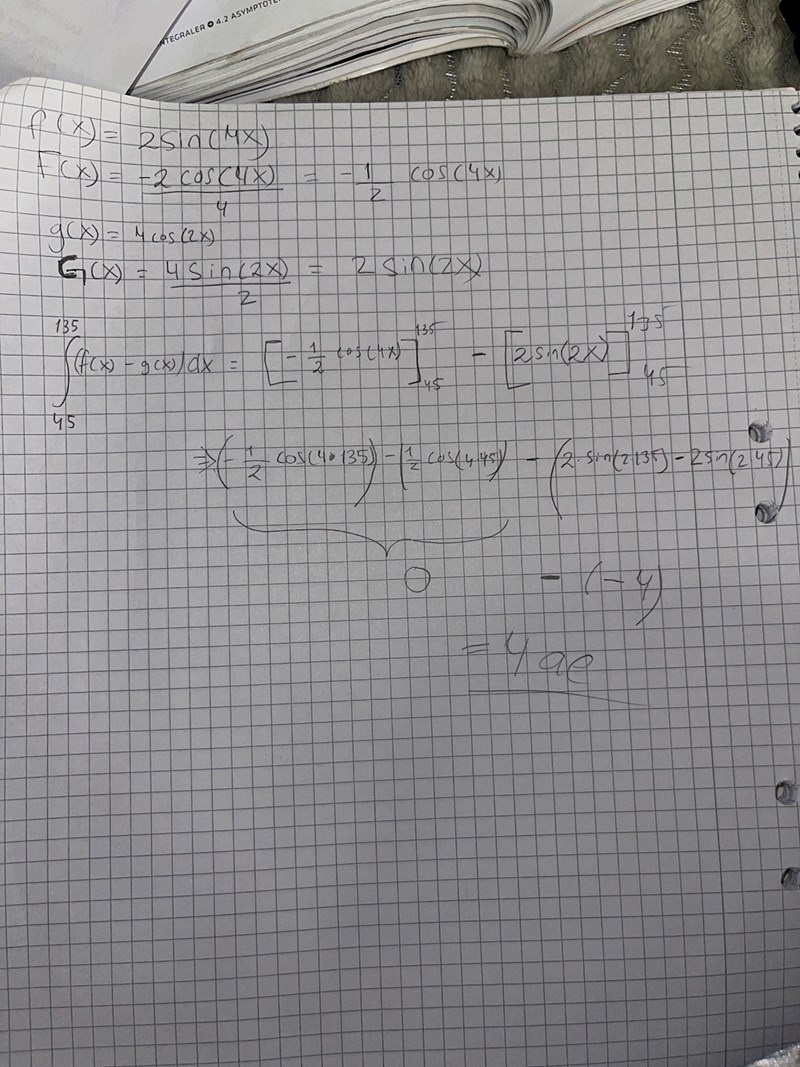 INTEGRALER 4.2 ASYMPTOTE
f(x) = 2sin(4x)
F(x) = -2 cos(4x)/4 = -1/2 cos(4x)
g(x) = 4cos(2x)
G(x) = 4 sin(2x)/2 = 2 sin(2x)
∫₄₅¹³⁵ (f(x) - g(x)) dx = [-1/2 cos(4x)]₄₅¹³⁵ - [2sin(2x)]₄₅¹³⁵
⇒ (-1/2 cos(4·135)) - (1/2 cos(4·45)) - (2·sin(2·135) - 2sin(2·45))
0 - (-4)
= 4 ae